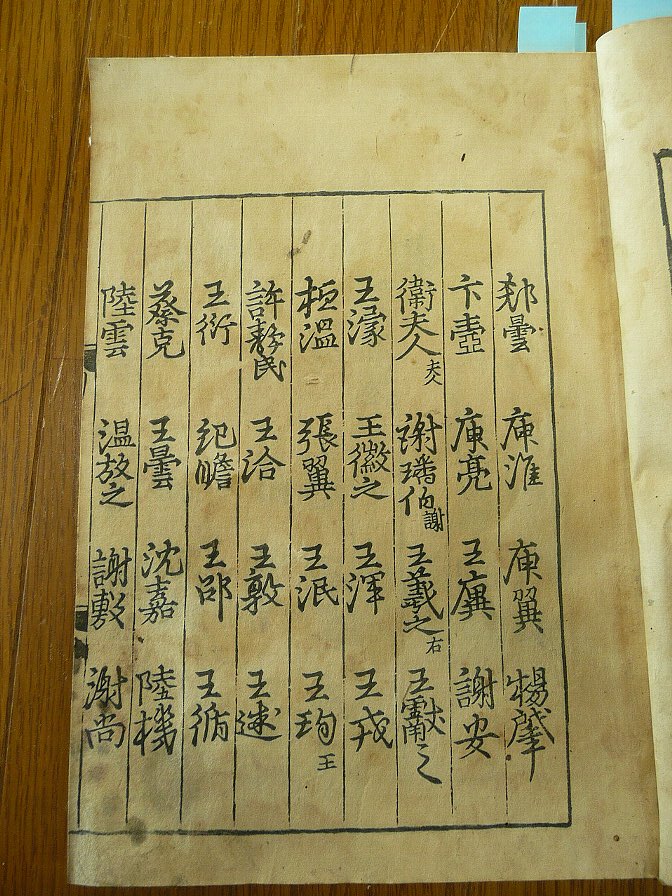 郄曇 庾準 庾翼 楊肇
卞壼 庾亮 王廙 謝安
衛夫人 夫人 謝璠伯 謝 王羲之 右 王獻之
王濛 王徽之 王渾 王戎
桓溫 張翼 王泯 王珣 王
許靜民 王洽 王敦
王衍 紀瞻 王邵 王循
蔡克 王曇 沈嘉 陸機
陸雲 溫放之 謝敷 謝尚